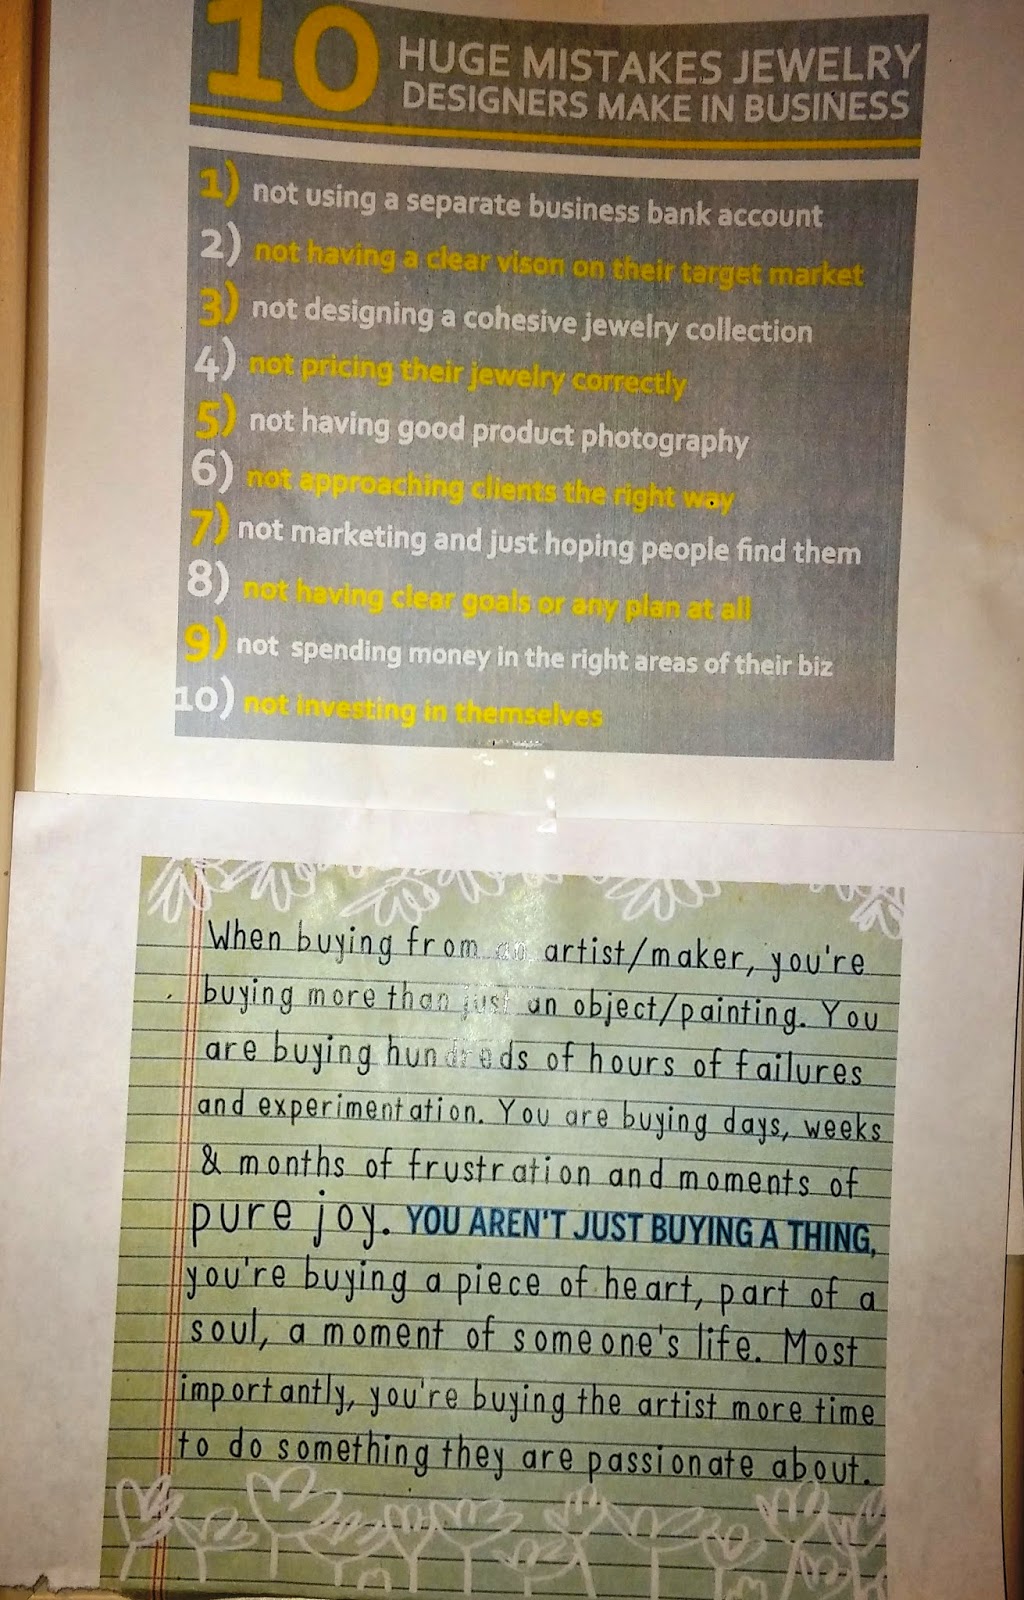 10 HUGE MISTAKES JEWELRY
DESIGNERS MAKE IN BUSINESS
1) not using a separate business bank account
2) not having a clear vison on their target market
3) not designing a cohesive jewelry collection
4) not pricing their jewelry correctly
5) not having good product photography
6) not approaching clients the right way
7) not marketing and just hoping people find them
8) not having clear goals or any plan at all
9) not spending money in the right areas of their biz
10) not investing in themselves
When buying from an artist/maker, you're
buying more than just an object/painting. You
are buying hundreds of hours of failures
and experimentation. You are buying days, weeks
& months of frustration and moments of
pure joy. YOU AREN'T JUST BUYING A THING,
you're buying a piece of heart, part of a
soul, a moment of someone's life. Most
importantly, you're buying the artist more time
to do something they are passionate about.